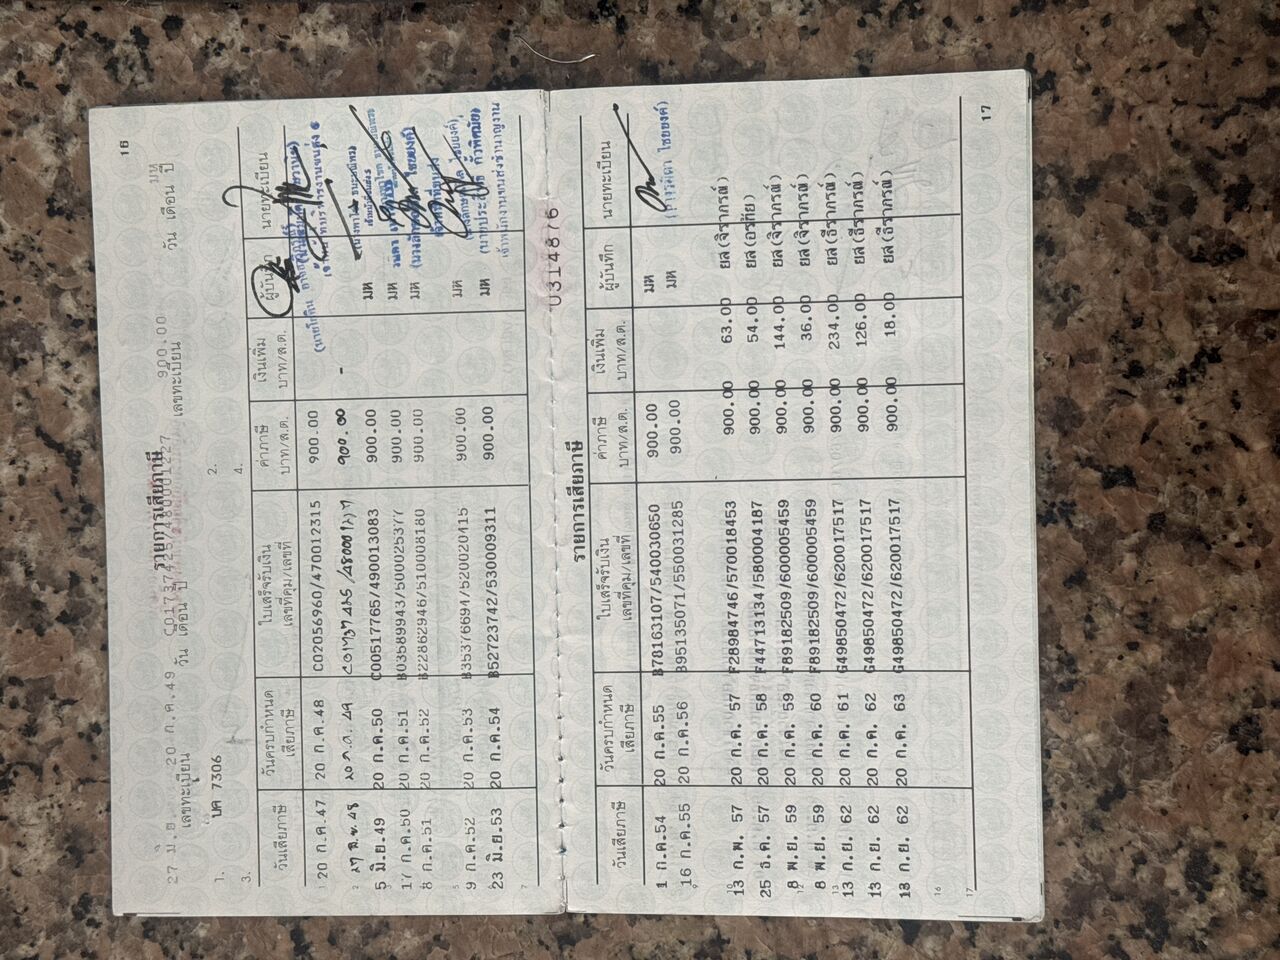 16
รายการเสียภาษี
27 มิ.ย. 20 ก.ค.49 C01737425/480001227 900.00 มห
เลขทะเบียน วัน เดือน ปี เลขทะเบียน วัน เดือน ปี
1. บค 7306 2.
3. 4.
วันเสียภาษี วันครบกำหนดเสียภาษี ใบเสร็จรับเงิน เลขที่คุม/เลขที่ ค่าภาษี บาท/ส.ต. เงินเพิ่ม บาท/ส.ต. ผู้บันทึก นายทะเบียน
1 20 ก.ค.47 20 ก.ค.48 C02056960/470012315 900.00
2 27 มิ.ย. 48 20 ก.ค. 49 C01737425/480001227 900.00 -
5 มิ.ย.49 20 ก.ค.50 C00517765/490013083 900.00 มห
17 ก.ค.50 20 ก.ค.51 B03589943/500025377 900.00 มห
8 ก.ค.51 20 ก.ค.52 B22862946/510008180 900.00 มห
9 ก.ค.52 20 ก.ค.53 B35376694/520020415 900.00 มห
23 มิ.ย.53 20 ก.ค.54 B52723742/530009311 900.00 มห
7
เจ้าพนักงานขนส่งชำนาญงาน
0314876
รายการเสียภาษี
วันเสียภาษี วันครบกำหนดเสียภาษี ใบเสร็จรับเงิน เลขที่คุม/เลขที่ ค่าภาษี บาท/ส.ต. เงินเพิ่ม บาท/ส.ต. ผู้บันทึก นายทะเบียน
1 ก.ค.54 20 ก.ค.55 B78163107/540030650 900.00 มห
16 ก.ค.55 20 ก.ค.56 B95135071/550031285 900.00 มห
13 ก.พ. 57 20 ก.ค. 57 F28984746/570018453 900.00 63.00 ยล(จิราภรณ์)
25 ธ.ค. 57 20 ก.ค. 58 F44713134/580004187 900.00 54.00 ยล(อรทัย)
8 พ.ย. 59 20 ก.ค. 59 F89182509/600005459 900.00 144.00 ยล(จิราภรณ์)
8 พ.ย. 59 20 ก.ค. 60 F89182509/600005459 900.00 36.00 ยล(จิราภรณ์)
13 ก.ย. 62 20 ก.ค. 61 G49850472/620017517 900.00 234.00 ยล(ธีราภรณ์)
13 ก.ย. 62 20 ก.ค. 62 G49850472/620017517 900.00 126.00 ยล(ธีราภรณ์)
13 ก.ย. 62 20 ก.ค. 63 G49850472/620017517 900.00 18.00 ยล(ธีราภรณ์)
16
17
17